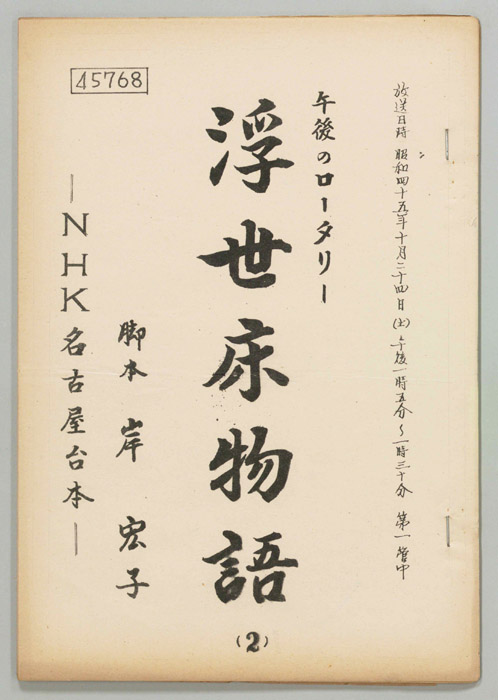 放送日時 昭和四十五年十月二十四日(土)午後一時五分〜一時三十分 第一管中
午後のロータリー
浮世床物語
(2)
脚本 岸 宏子
―NHK名古屋台本―
45768